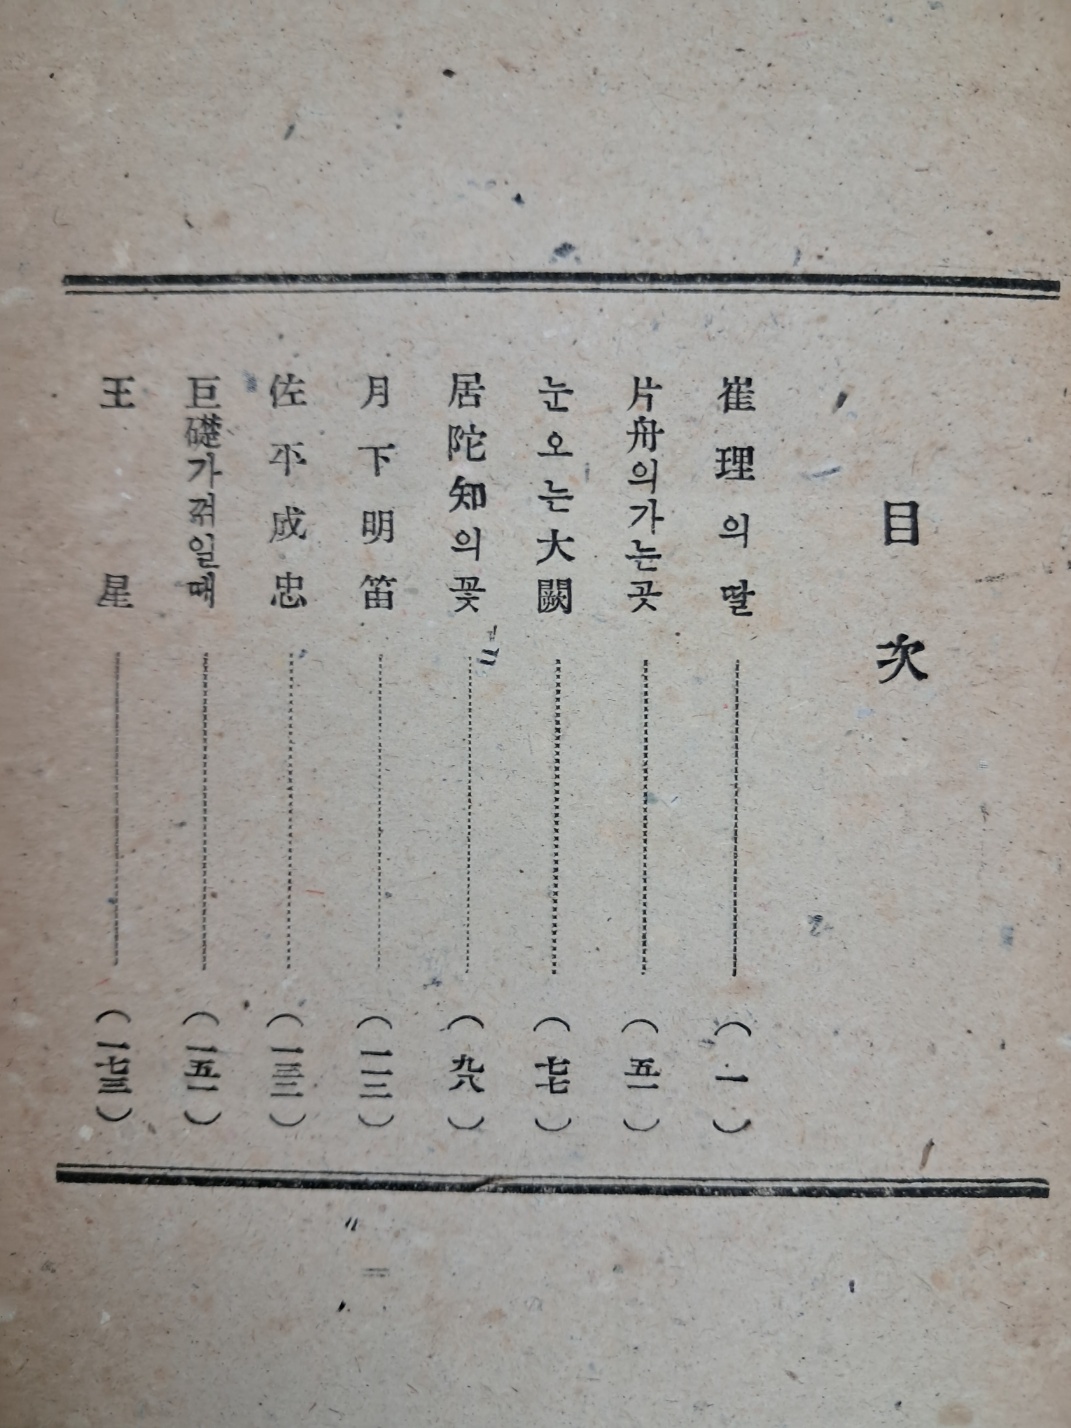 目次
崔理의딸(一)
片舟의가는곳(五一)
눈오는大闕(七七)
居陀知의꽃(九八)
月下明笛(一一三)
佐平成忠(一三三)
巨礎가꺾일때(一五一)
王星(一七三)